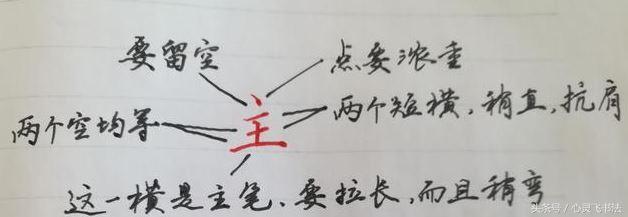 要留空
点要浓重
两个空均等
主
两个短横，稍直，抗肩
这一横是主笔、要拉长，而且稍弯
头条号 / 心灵飞书法